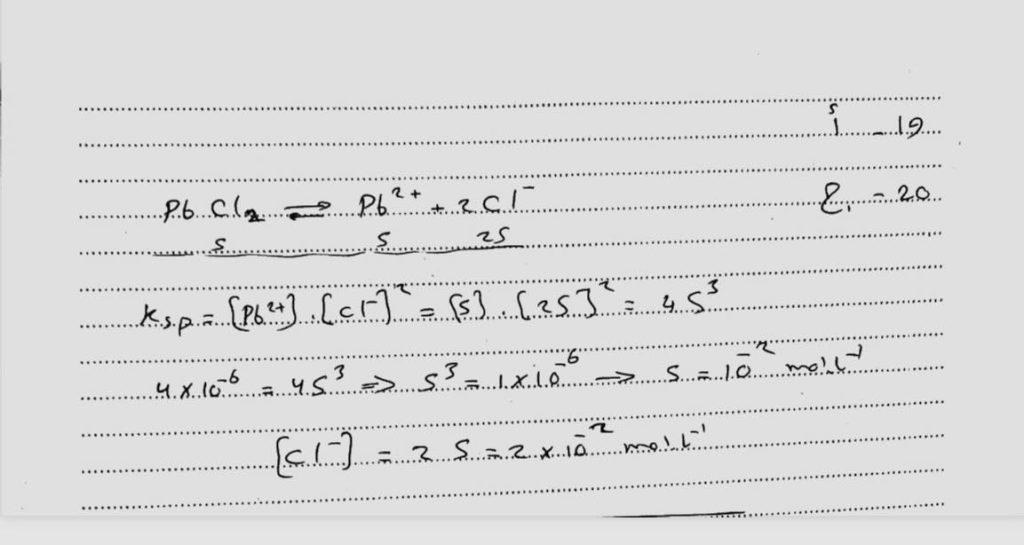 أ - 19
PbCl₂ ⇌ Pb²⁺ + 2Cl⁻ ع - 20
S S 2S
Ks.p = [Pb²⁺] . [Cl⁻]² = [S] . [2S]² = 4S³
4 × 10⁻⁶ = 4S³ ⇒ S³ = 1 × 10⁻⁶ → S = 10⁻² mol.L⁻¹
[Cl⁻] = 2S = 2 × 10⁻² mol.L⁻¹